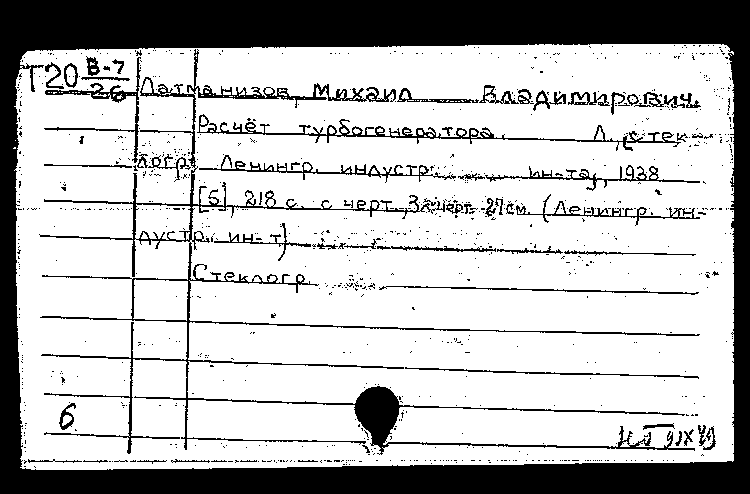 Т20 В-7
26
Латманизов, Михаил Владимирович.
Расчёт турбогенератора. Л., [стек-
логр. Ленингр. индустр. ин-та], 1938
[6], 218 с. с черт., 27см. (Ленингр. ин-
дустр. ин-т)
Стеклогр.
6